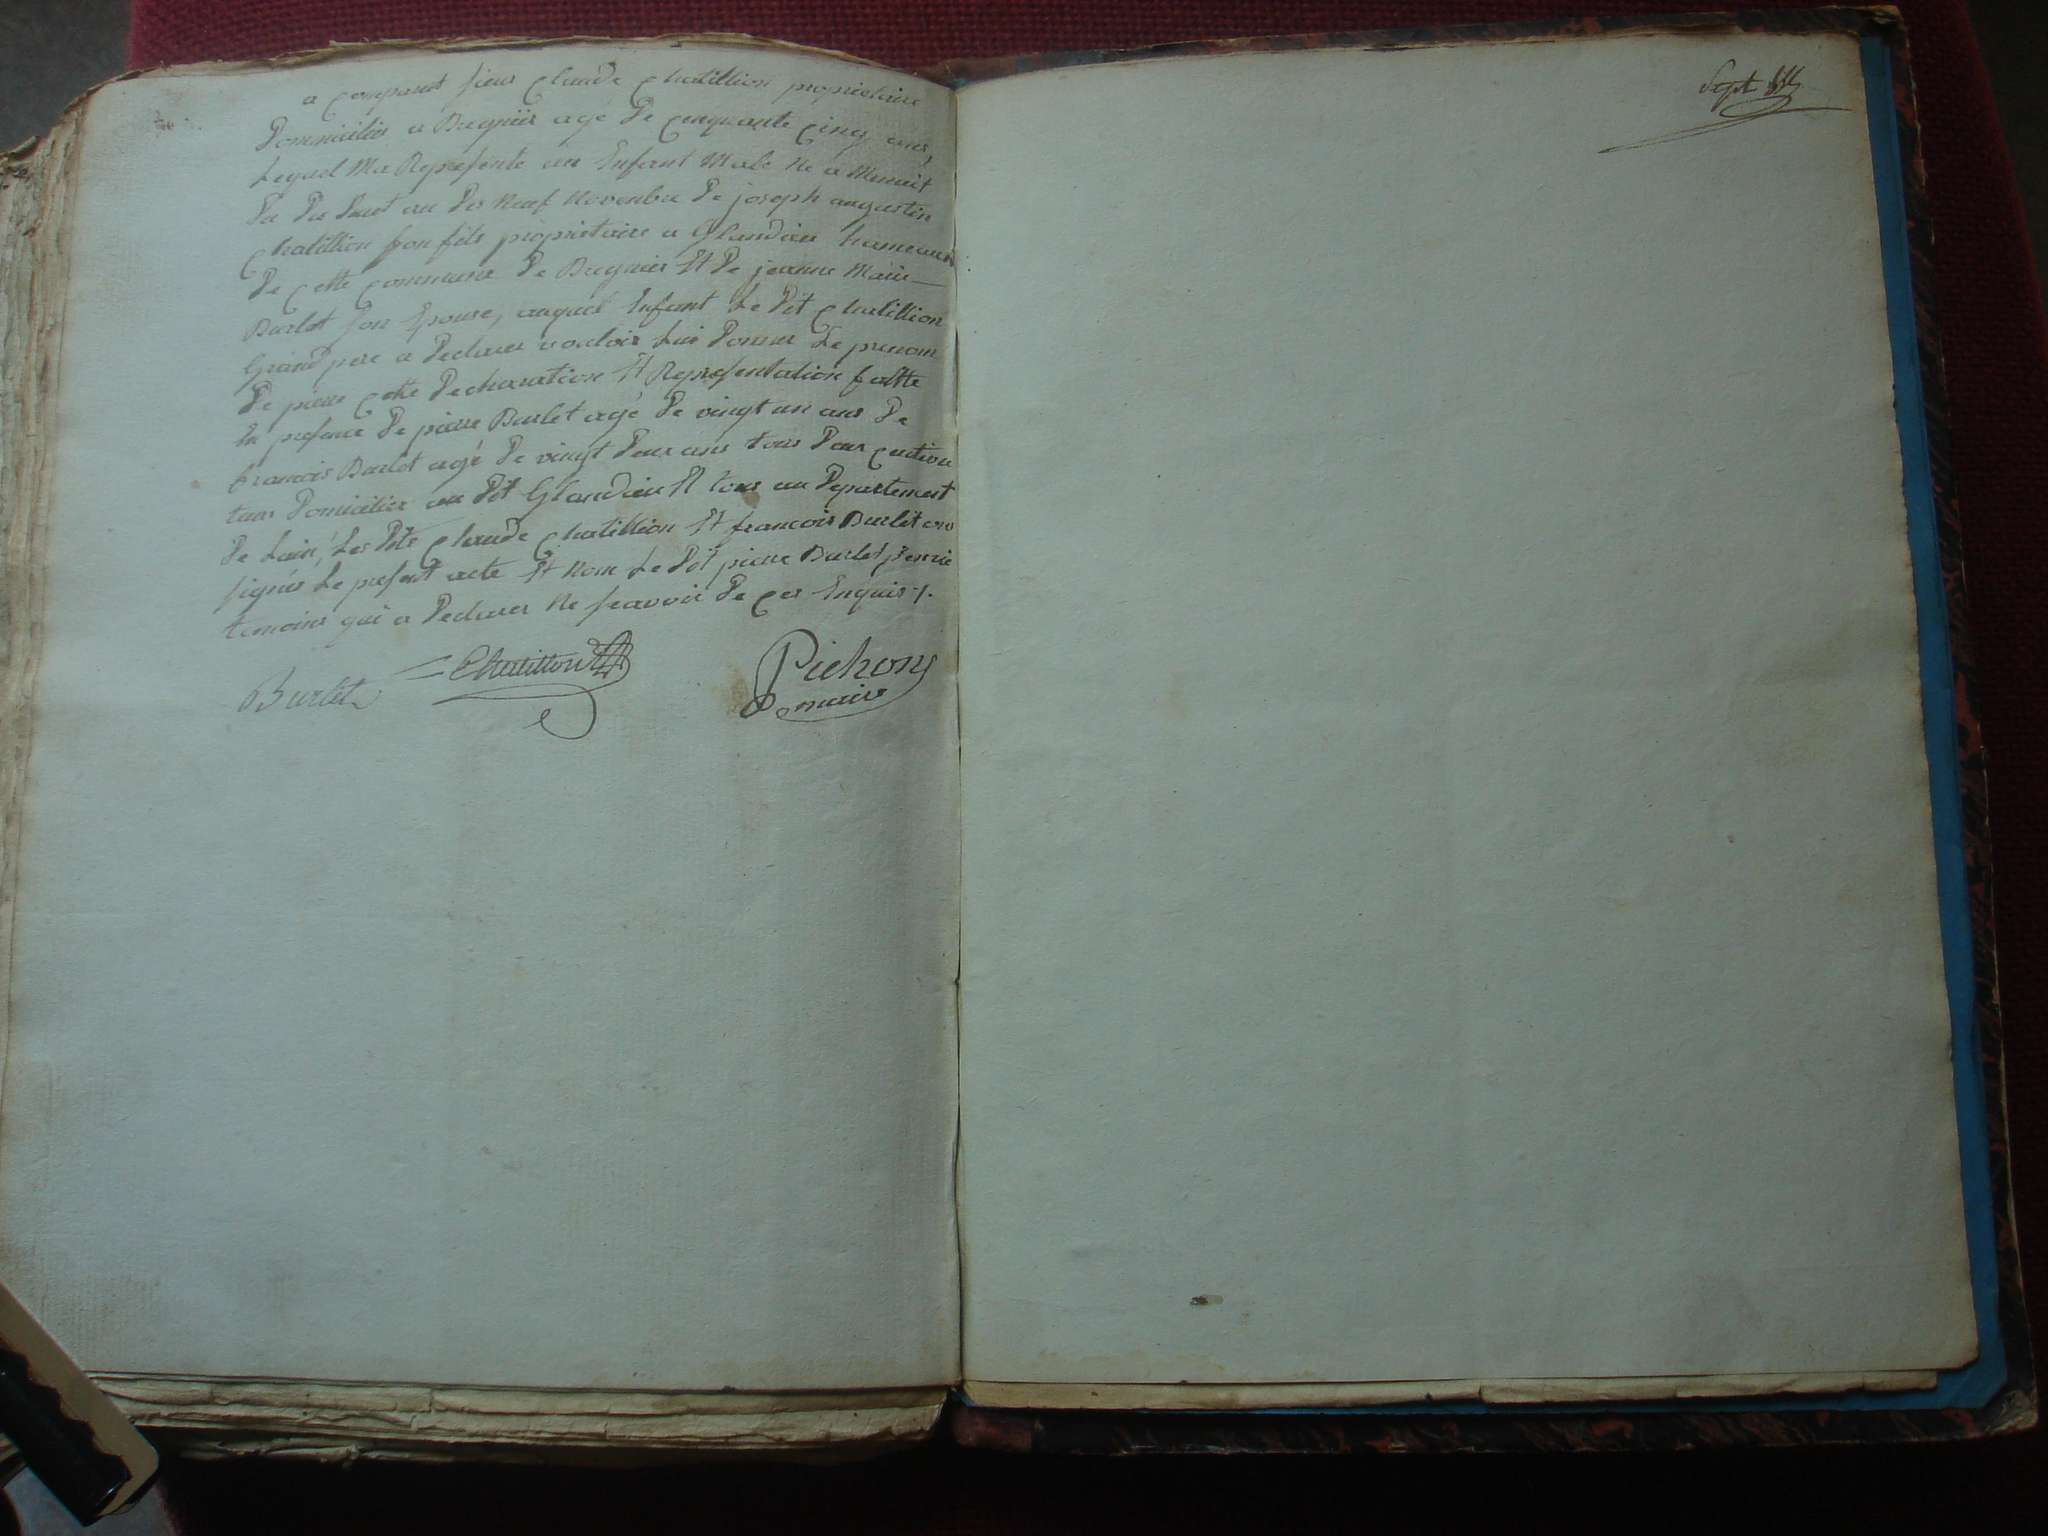 a comparut sieur Claude Chatillion propriétaire
Dommicilié a Bregnier agé De Cenquante Cinq ans,
Lequel Ma Represente un Enfant Male Ne a Menuit
Du Du huet au Dis Neuf Novenbre De joseph augustin
Chatillion son fils propriétaire a Glandieu hameaux
De Cette Commune De Bregnier Et De jeanne Marie
Burlet son Epouse, auquel Enfant Le Dit Chatillion
Grand pere a Declarer vouloir Lui Donner Le prenom
De pierre Cette Declaration Et Representation faitte
En presence De pierre Burlet agé De vingt un ans De
francois Burlet agé De vingt Deux ans tous Deux Cultiva
teurs Domicilier au Dit Glandieu Et tous au Departement
De Lain, Les Dits Claude Chatillion Et francois Burlet ons
signés Le present acte Et Nom Le Dit pierre Burlet
temoins qui a Declarer Ne scavoir De Ces Enquis ⁒
Burlet Chatillion Pichon
maire
Sept